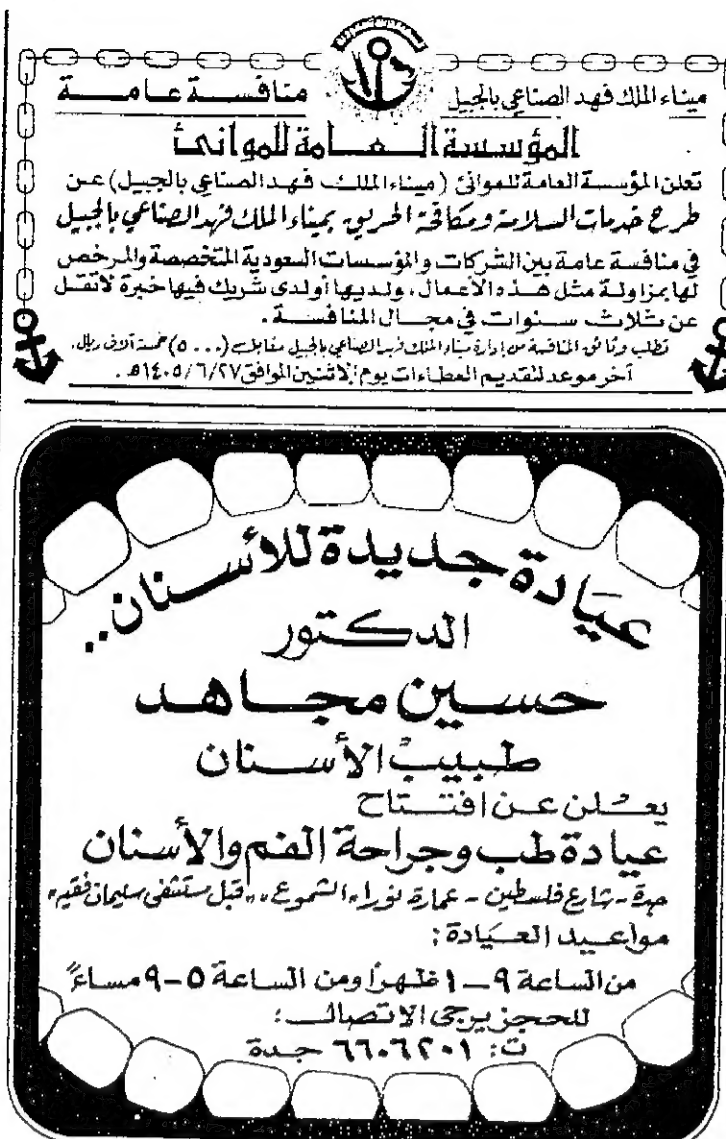 ميناء الملك فهد الصناعي بالجبيل
منافسة عامة
المؤسسة العامة للموانئ
تعلن المؤسسة العامة للموانئ (ميناء الملك فهد الصناعي بالجبيل) عن
طرح خدمات السلامة ومكافحة الحريق بميناء الملك فهد الصناعي بالجبيل
في منافسة عامة بين الشركات والمؤسسات السعودية المتخصصة والمرخص
لها بمزاولة مثل هذه الأعمال، ولديها أو لدى شريك فيها خبرة لا تقل
عن ثلاث سنوات في مجال المنافسة.
تطلب وثائق المنافسة من إدارة ميناء الملك فهد الصناعي بالجبيل مقابل (٥٠٠٠) خمسة آلاف ريال.
آخر موعد لتقديم العطاءات يوم الاثنين الموافق ١٤٠٥/٦/٢٧هـ.
عيادة جديدة للأسنان..
الدكتور
حسين مجاهد
طبيب الأسنان
يعلن عن افتتاح
عيادة طب وجراحة الفم والأسنان
جدة - شارع فلسطين - عمارة نوراء الشموع،، قبل مستشفى سليمان فقيه،،
مواعيد العيادة:
من الساعة ٩-١ ظهراً ومن الساعة ٥-٩ مساءً
للحجز يرجى الاتصال:
ت: ٦٦٠٦٢٠١ جدة